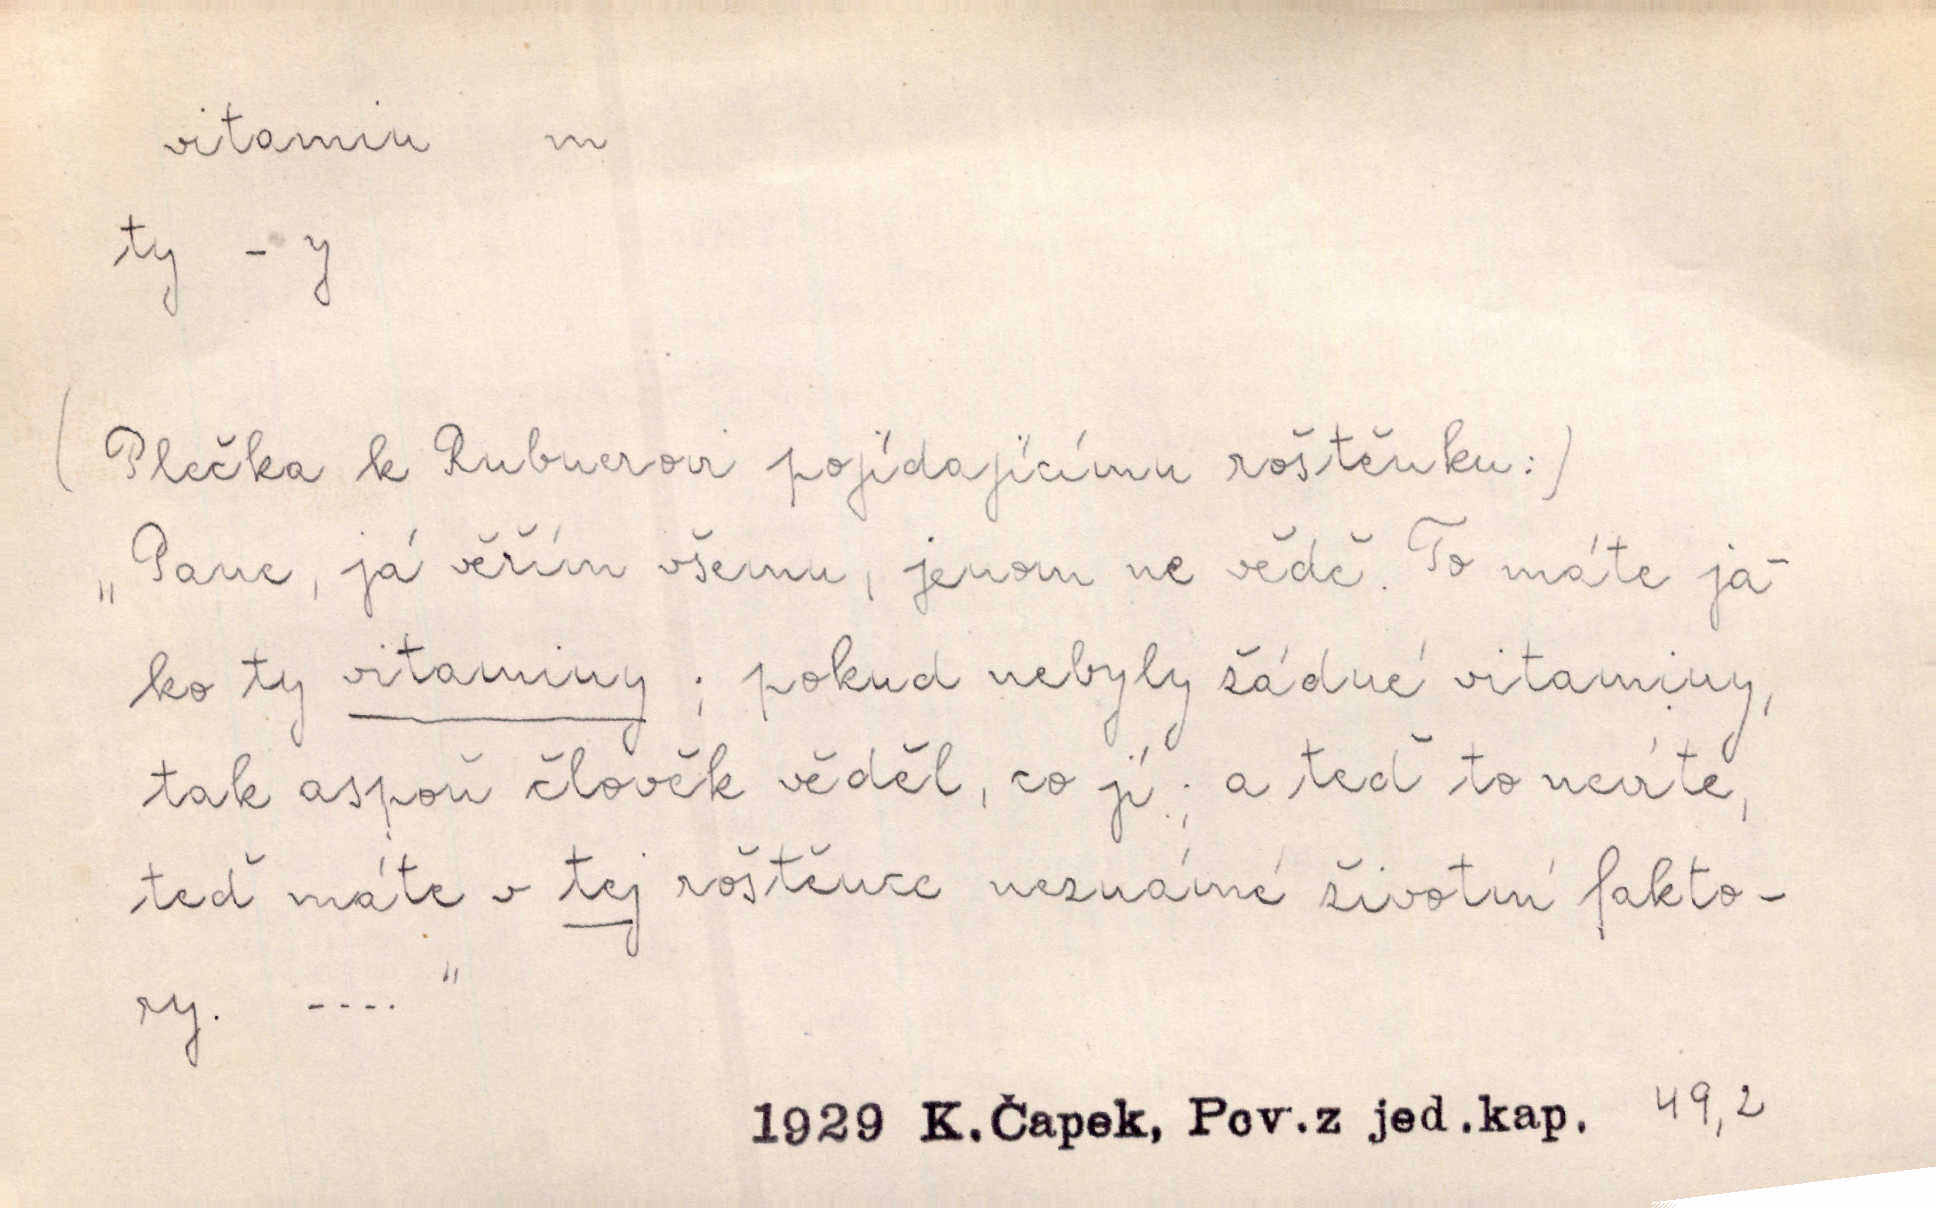 vitamin m
ty - y
(Plečka k Rubnerovi pojídajícímu roštěnku:)
„Pane, já věřím všemu, jenom ne vědě. To máte ja-
ko ty vitaminy; pokud nebyly žádné vitaminy,
tak aspoň člověk věděl, co jí; a teď to nevíte,
teď máte v tej roštěnce neznámé životní fakto-
ry. ----"
1929 K.Čapek, Pov.z jed.kap. 49,2